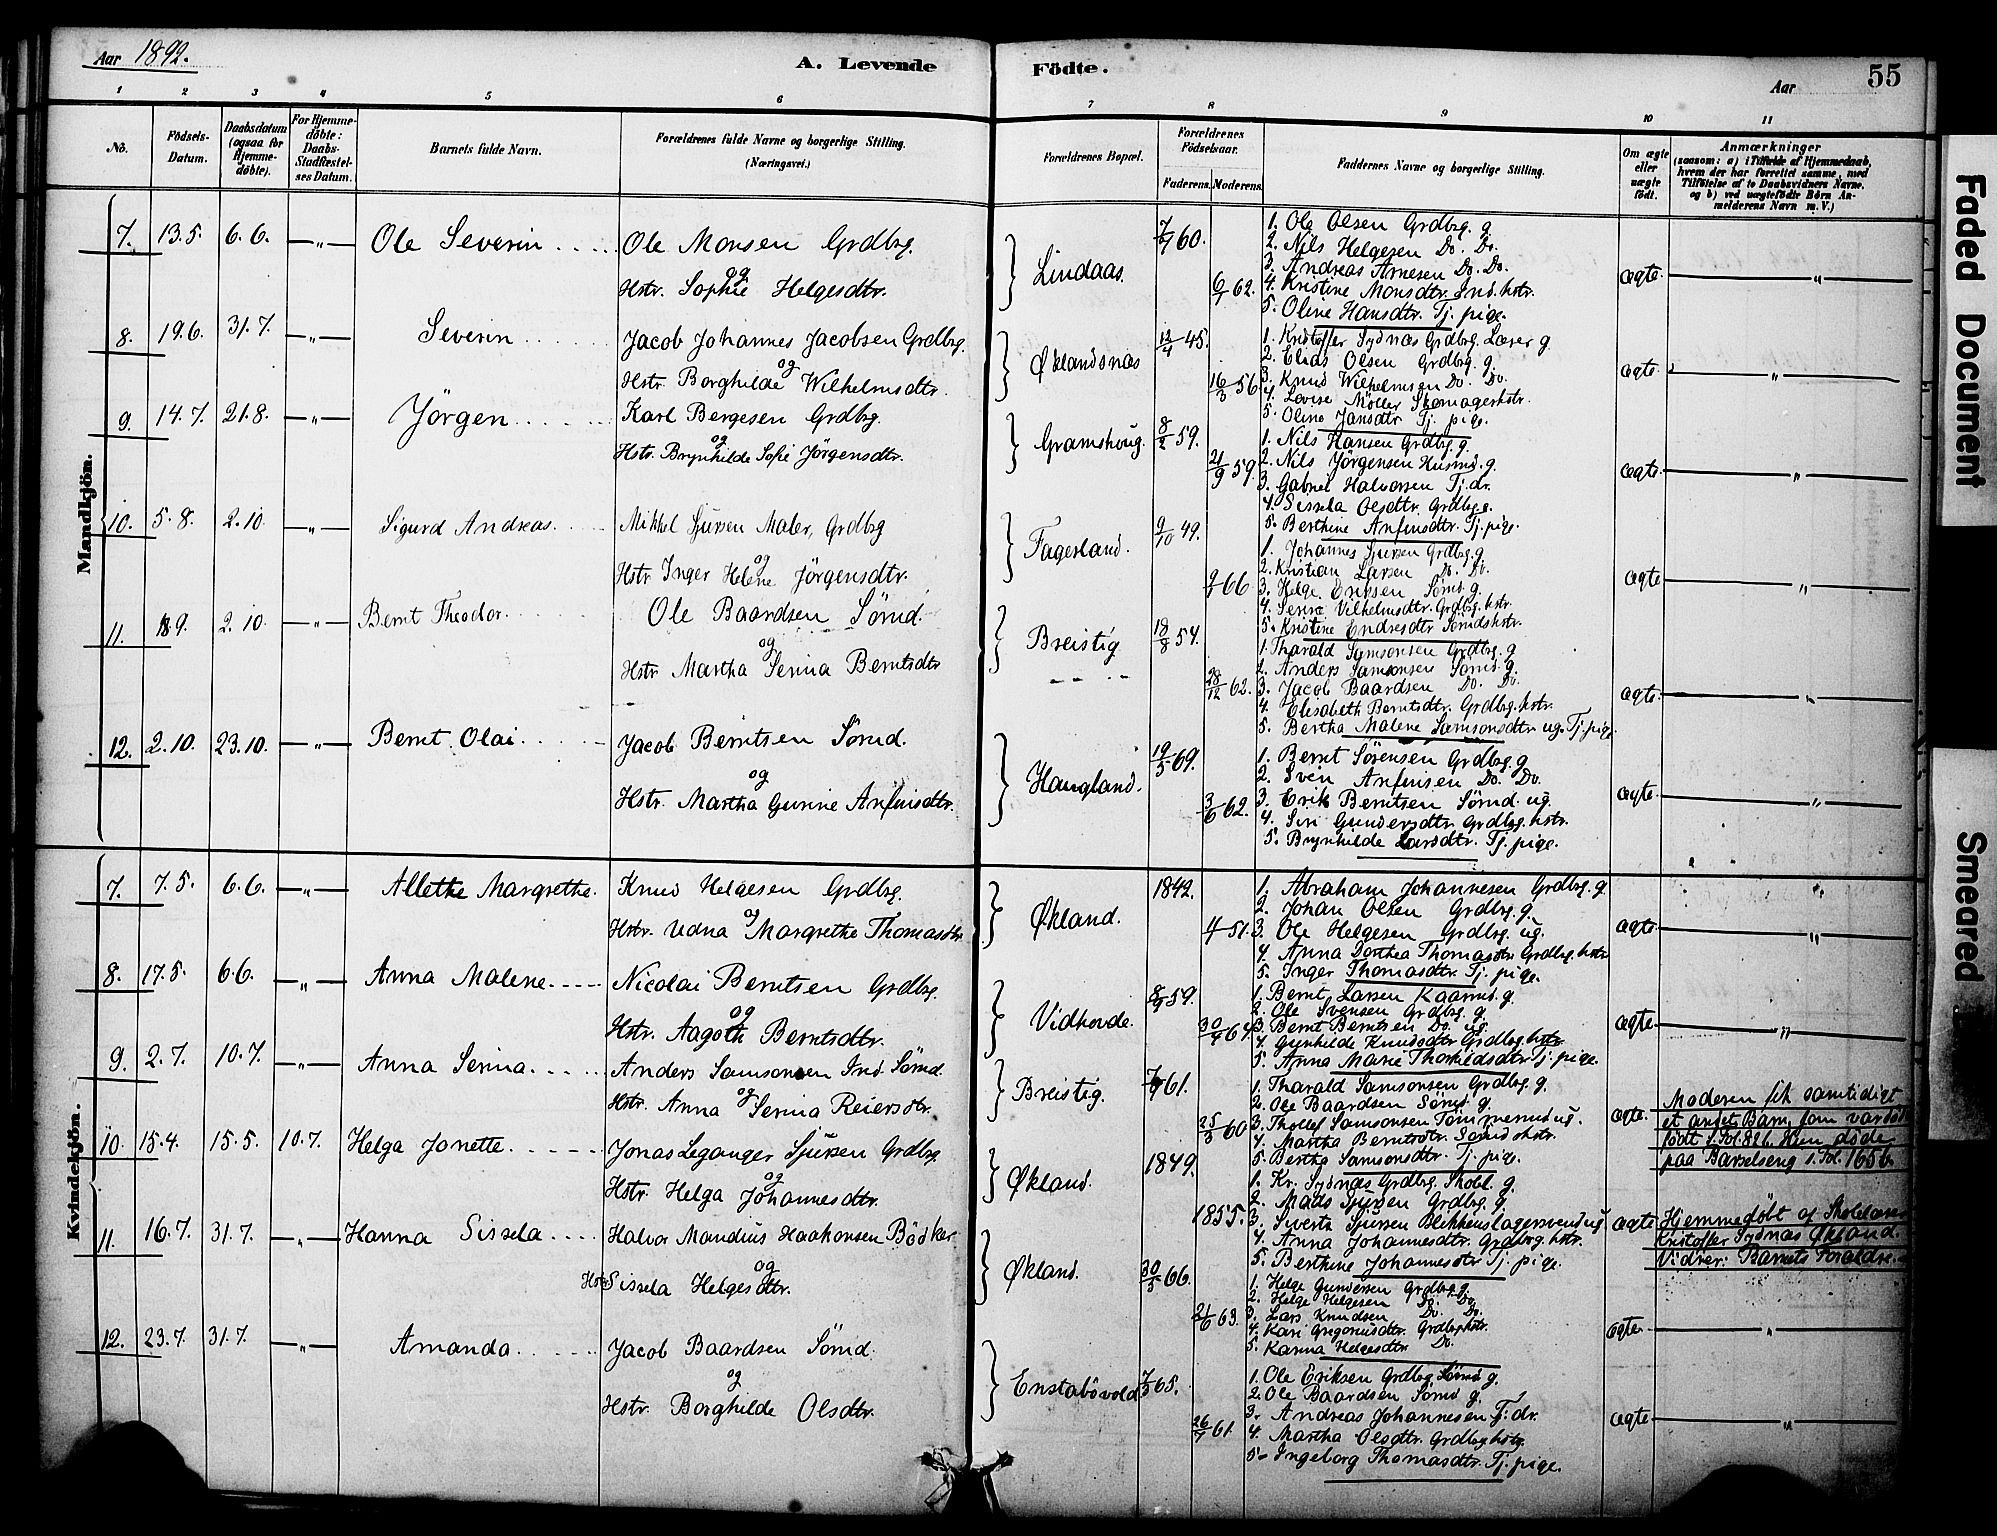 Aar 1892.
A. Levende Födte.
Aar
55
1 2 3 4 5 6 7 8 9 10 11
No.
Födsels-Datum.
Daabsdatum (ogsaa for Hjemme-döbte).
For Hjemme-döbte: Daabs-Stadfæstel-ses Datum.
Barnets fulde Navn.
Forældrenes fulde Navne og borgerlige Stilling. (Næringsvei.)
Forældrenes Bopæl.
Forældrenes Födselsaar.
Faderens. Moderens.
Faddernes Navne og borgerlige Stilling.
Om ægte eller uægte födt.
Anmærkninger
(saasom: a) i Tilfælde af Hjemmedaab, hvem der har forrettet samme, med Tilföielse af to Daabsvidners Navne, og b) ved uægtefödte Börn An-melderens Navn m. V.)
Mandkjön.
7. 13.5. 6.6. —„— Ole Severin
Ole Monsen Grdbrg.
og
Hstr. Sophie Helgesdtr.
Lindaas.
60.
62.
1. Ole Olsen Grdbrg. g.
2. Nils Helgesen Do. Do.
3. Andreas Arnesen Do. Do.
4. Kristine Monsdtr. Ind. hstr.
5. Oline Hansdtr. Tj. pige.
ægte. „
8. 19.6. 31.7. —„— Severin
Jacob Johannes Jacobsen Grdbrg.
og
Hstr. Borghilde Wilhelmsdtr.
Øklandsnæs
12/4 45.
16/3 56
1. Kristoffer Sydnæs Grdbrg. Lærer g.
2. Elias Olsen Grdbrg. g.
3. Knud Wilhelmsen Do. Do.
4. Lovise Möller Skomagerhstr.
5. Oline Jansdtr. Tj. pige.
ægte. „
9. 14.7. 21.8. —„— Jörgen
Karl Bergesen Grdbrg.
og
Hstr. Brynhilde Sofie Jörgensdtr.
Gramshoug.
8/2 59.
21/9 59.
1. Nils Hansen Grdbrg. g.
2. Nils Jörgensen Husmd. g.
3. Gabriel Halvorsen Tj. dr.
4. Sissela Olsdtr. Grdbrg.
5. Berthine Anfinsdtr. Tj. pige.
ægte. „
10. 5.8. 2.10 —„— Sigurd Andreas.
Mikkel Sjursen Maler, Grdbrg
og
Hstr. Inger Helene Jörgensdtr.
Fagerland.
9/10 49.
66
1. Johannes Sjursen Grdbrg. g
2. Kristian Larsen Do. Do.
3. Helge Eriksen Sömd. g.
4. Serine Vilhelmsdtr. Grdbrg. hstr.
5. Kristine Endresdtr. Sömdshstr.
ægte „
11. 18.9. 2.10. —„— Bernt Theodor.
Ole Baardsen Sömd.
og
Hstr. Martha Serina Berntsdtr
Breistig
18/8 54.
28/12 62.
1. Tharald Samsonsen Grdbrg. g
2. Anders Samsonsen Sömd. g.
3. Jacob Baardsen Do. Do.
4. Elisabeth Berntsdtr. Grdbrg. hstr.
5. Bertha Malene Samsonsdtr. ug. Tj. pige
ægte. „
12. 2.10. 23.10. —„— Bernt Olai
Jacob Berntsen Sömd.
og
Hstr. Martha Gurine Anfinsdtr.
Haugland.
19/5 69.
3/6 62.
1. Bernt Sörensen Grdbrg. g
2. Sven Anfinsen Do. Do.
3. Erik Berntsen Sömd. ug.
4. Siri Gundersdtr. Grdbrg. hstr.
5. Brynhilde Larsdtr. Tj. pige.
ægte. „
Kvindekjön.
7. 7.5. 6.6. —„— Allethe Margrethe.
Knud Helgesen Grdbrg.
og
Hstr. Udna Margrethe Thomasdtr.
Økland.
1842.
51.
1. Abraham Johannesen Grdbrg. g.
2. Johan Olsen Grdbrg. g.
3. Ole Helgesen Grdbrg. ug.
4. Anna Dorthea Thomasdtr. Grdbrg. hstr
5. Inger Thomasdtr. Tj. pige.
ægte. „
8. 17.5. 6.6. —„— Anna Malene
Nicolai Berntsen Grdbrg.
og
Hstr. Aagoth Berntsdtr.
Vidhovde.
59.
64.
1. Bernt Larsen Kaarmd. g.
2. Ole Svensen Grdbrg. g
3. Bernt Berntsen Do. ug.
4. Gunhilde Knudsdtr. Grdbrg. hstr.
5. Anna Marie Thorkildsdtr Tj. pige.
ægte. „
9. 2.7. 10.7. —„— Anna Serina.
Anders Samsonsen Ind. Sömd.
og
Hstr. Anna Serina Reiersdtr.
Breistig.
61.
25/3 60
1. Tharald Samsonsen Grdbrg. g.
2. Ole Baardsen Sömd. g.
3. Thollef Samsonsen Tömmermd ug.
4. Martha Berntsdtr. Sömdshstr.
5. Bertha Samsonsdtr. Tj. pige.
ægte.
Moderen fik samtidigt et andet Barn, som var död födt f. Fol. 82 b. Hun döde paa Barselseng s. Fol. 165 b.
10. 15.4. 15.5. 10.7. Helga Jonette.
Jonas Leganger Sjursen Grdbrg
og
Hstr. Helga Johannesdtr.
Økland.
1849.
1855.
1. Kr. Sydnæs Grdbrg. Skol. g.
2. Mads Sjursen Grdbrg. g.
3. Siverts Sjursen Blikkenslagersvend ug
4. Anna Johannesdtr. Grdbrg. hstr.
5. Berthine Johannesdtr Tj. pige.
ægte
Hjemmedöbt af Skolelærer Kristoffer Sydnæs Økland. Vidner: Barnets Forældre.
11. 16.7. 31.7. —„— Hanna Sissela
Halvor Mandius Haakonsen Bödker
og
Hstr. Sissela Helgesdtr.
Økland.
30/5 66.
63.
1. Helge Gundersen Grdbrg. g
2. Helge Helgesen Do. Do.
3. Lars Knudsen Do. Do.
4. Kari Gregoriusdtr. Grdbrg. hstr.
5. Karina Helgesdtr. Do.
ægte „
12. 23.7. 31.7. —„— Amanda.
Jacob Baardsen Sömd.
og
Hstr. Borghilde Olsdtr.
Enstabövold
65.
26/7 61.
1. Ole Eriksen Grdbrg. Sömd g.
2. Ole Baardsen Sömd g.
3. Andreas Johannesen Tj. dr.
4. Martha Olsdtr. Grdbrg. hstr.
5. Ingeborg Thomasdtr. Tj. pige.
ægte „
Faded Document
Smeared